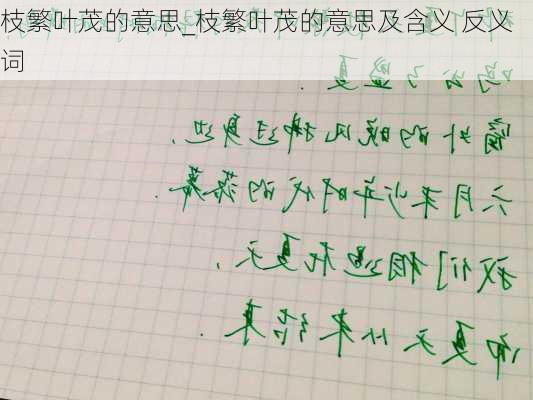 枝繁叶茂的意思_枝繁叶茂的意思及含义 反义
词
了盛夏.
窗外的晚风拂过身边,
六月末少年时代的落幕.
我们相遇在夏天,
却夏天从未结束.